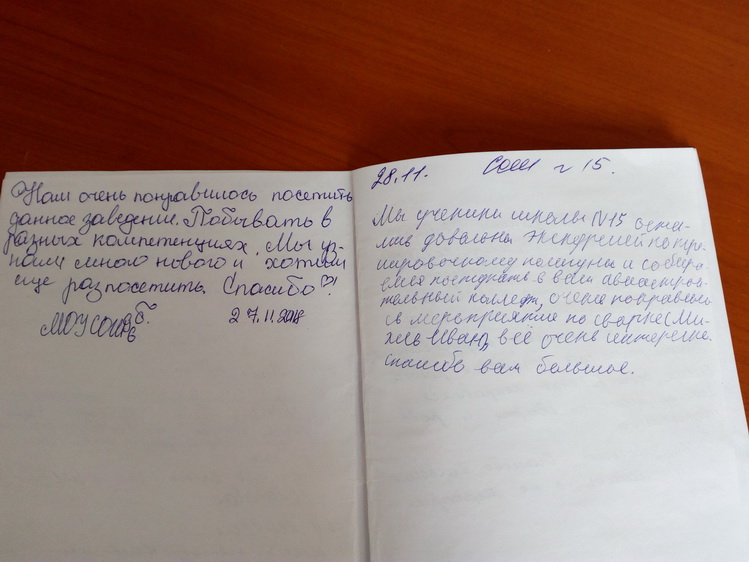 Нам очень понравилось посетить
данное заведении. Побывать в
разных компетенциях. Мы уз-
нали много нового и хотим
еще раз посетить. Спасибо♡!
МОУСОШ 6
27.11.2018
28.11. СОШ № 15.
Мы ученики школы №15 оста-
лись довольны экскурсией по
и собира
емся поступать в ваш авиастрои-
тельный колледж, очень понравилось
мероприятие по сварке (Ми-
Иван), всё очень интересно.
спасибо вам большое.